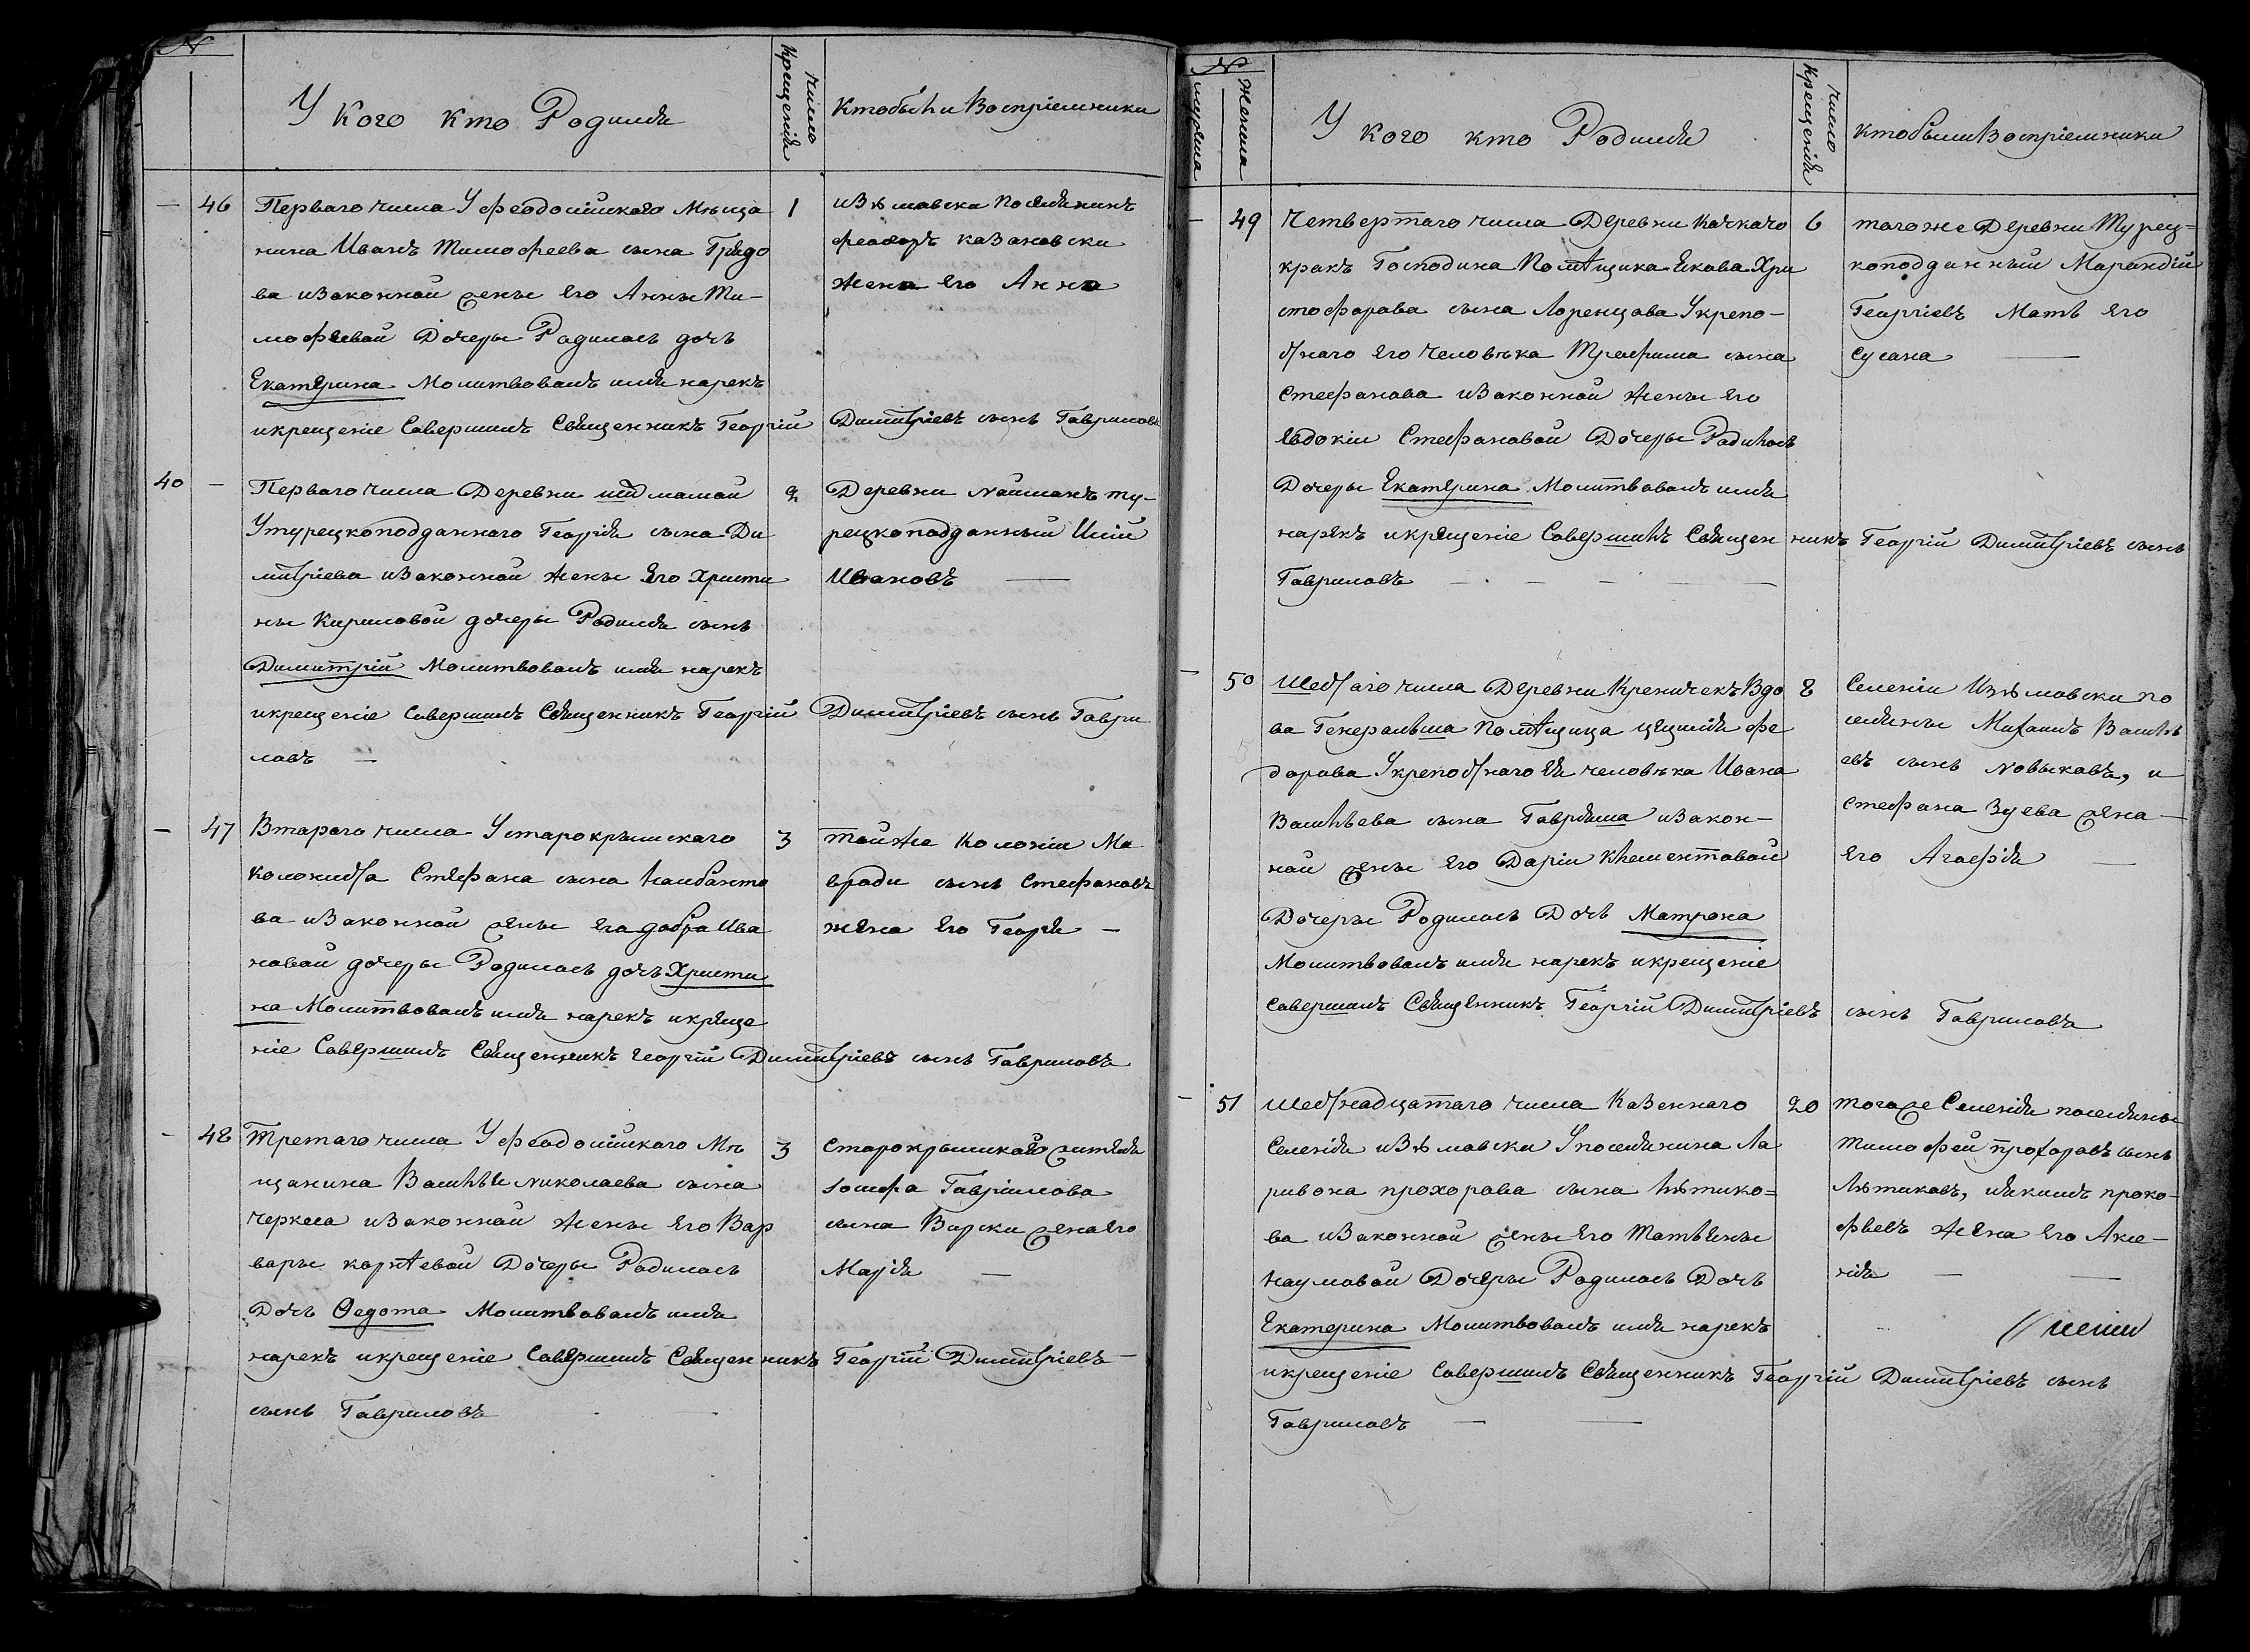 №
У Кого кто Родился
Число Крещенія
Кто были Воспріемники
46
Перваго числа У феодосійскаго Мѣща
1
нина Иванъ Тимофеева сына Грядо
ва изаконной жены Его Анны Ти-
мофеевой Дочеры Родилась дочь
Екатерина Молитвовалъ имя нарекъ
икрещеніе Совершилъ Священникъ Георгій Димитріевъ сынъ Гавриловъ
Изюмовска Поселянинъ
феодоръ казановски
жена Его Анна
40
Перваго числа Деревни
2
Утурецкоподданнаго Георгія сына Ди
митріева изаконной жены Его Христи
ны Кириловой дочеры Родился сынъ
Димитрій Молитвовалъ имя нарекъ
икрещеніе Совершилъ Священникъ Георгій Димитріевъ сынъ Гаври
ловъ
Деревни Найманъ ту-
рецкоподданный Илій
Ивановъ
47
Втораго числа Устарокрымскаго
3
колониста Стефана сына
ва изаконной жены его добра Ива
новой дочеры Родилась дочь Христи
на Молитвовалъ имя нарекъ икреще
ніе Совершилъ Священникъ Георгій Димитріевъ сынъ Гавриловъ
тойже Колоніи Ма
вроди сынъ Стефановъ
жена Его Георгія
48
Третаго числа У феодосійскаго Мѣ
3
щанина Василья николаева сына
черкеса изаконной жены Его Вар
вары корнѣевой Дочеры Родилась
Дочь Федота Молитвовалъ имя
нарекъ икрещеніе Совершилъ Священникъ Георгій Димитріевъ
сынъ Гавриловъ
Старокрымскаго жителя
Іосифа Гаврилова
сына Варски жена его
Марія
№
мужеска
Женска
У кого кто Родился
Число Крещенія
Кто были Воспріемники
49
Четвертаго числа Деревни Качкачо
6
кракъ Господина Помѣщика Якова Хри
стофорова сына Лоренцова Укрепо-
стнаго его человѣка Трофима сына
Стефанова изаконной жены Его
Евдокіи Стефановой Дочеры Родилась
Дочеры Екатерина Молитвовалъ имя
нарекъ икрещеніе Совершилъ Священникъ Георгій Димитріевъ сынъ
Гавриловъ
тогоже Деревни Турец=
коподданный Марандій
Георгіевъ Мать Его
Сусана
50
Шестаго числа Деревни Креничекъ Вдо
8
ва Генеральша Помѣщица Цецилія фе
дорова Укрепостнаго Ея человѣка Ивана
Васильева сына Гаврыша изакон-
ной жены Его Даріи Клементовой
Дочеры Родилась Дочь Матрона
Молитвовалъ имя нарекъ икрещеніе
Совершилъ Священникъ Георгій Димитріевъ сынъ Гавриловъ
Селенія Изюмовски по
селяны Михаилъ Василь
евъ сынъ Новыковъ, и
Стефана Зуева жена
Его Агафія
51
Шестнадцатаго числа Казеннаго
20
Селенія изюмовски Упоселянина Ла
ривона прохорова сына Лѣтико=
ва изаконной жены Его Татьяны
Наумовой Дочеры Родилась Дочь
Екатерина Молитвовалъ имя нарекъ
икрещеніе Совершилъ Священникъ Георгій Димитріевъ сынъ
Гавриловъ
тогоже Селенія поселяны
Тимофей прохоровъ сынъ
Лѣтиковъ, иякимъ проко-
фьевъ жена Его Аксе-
нія